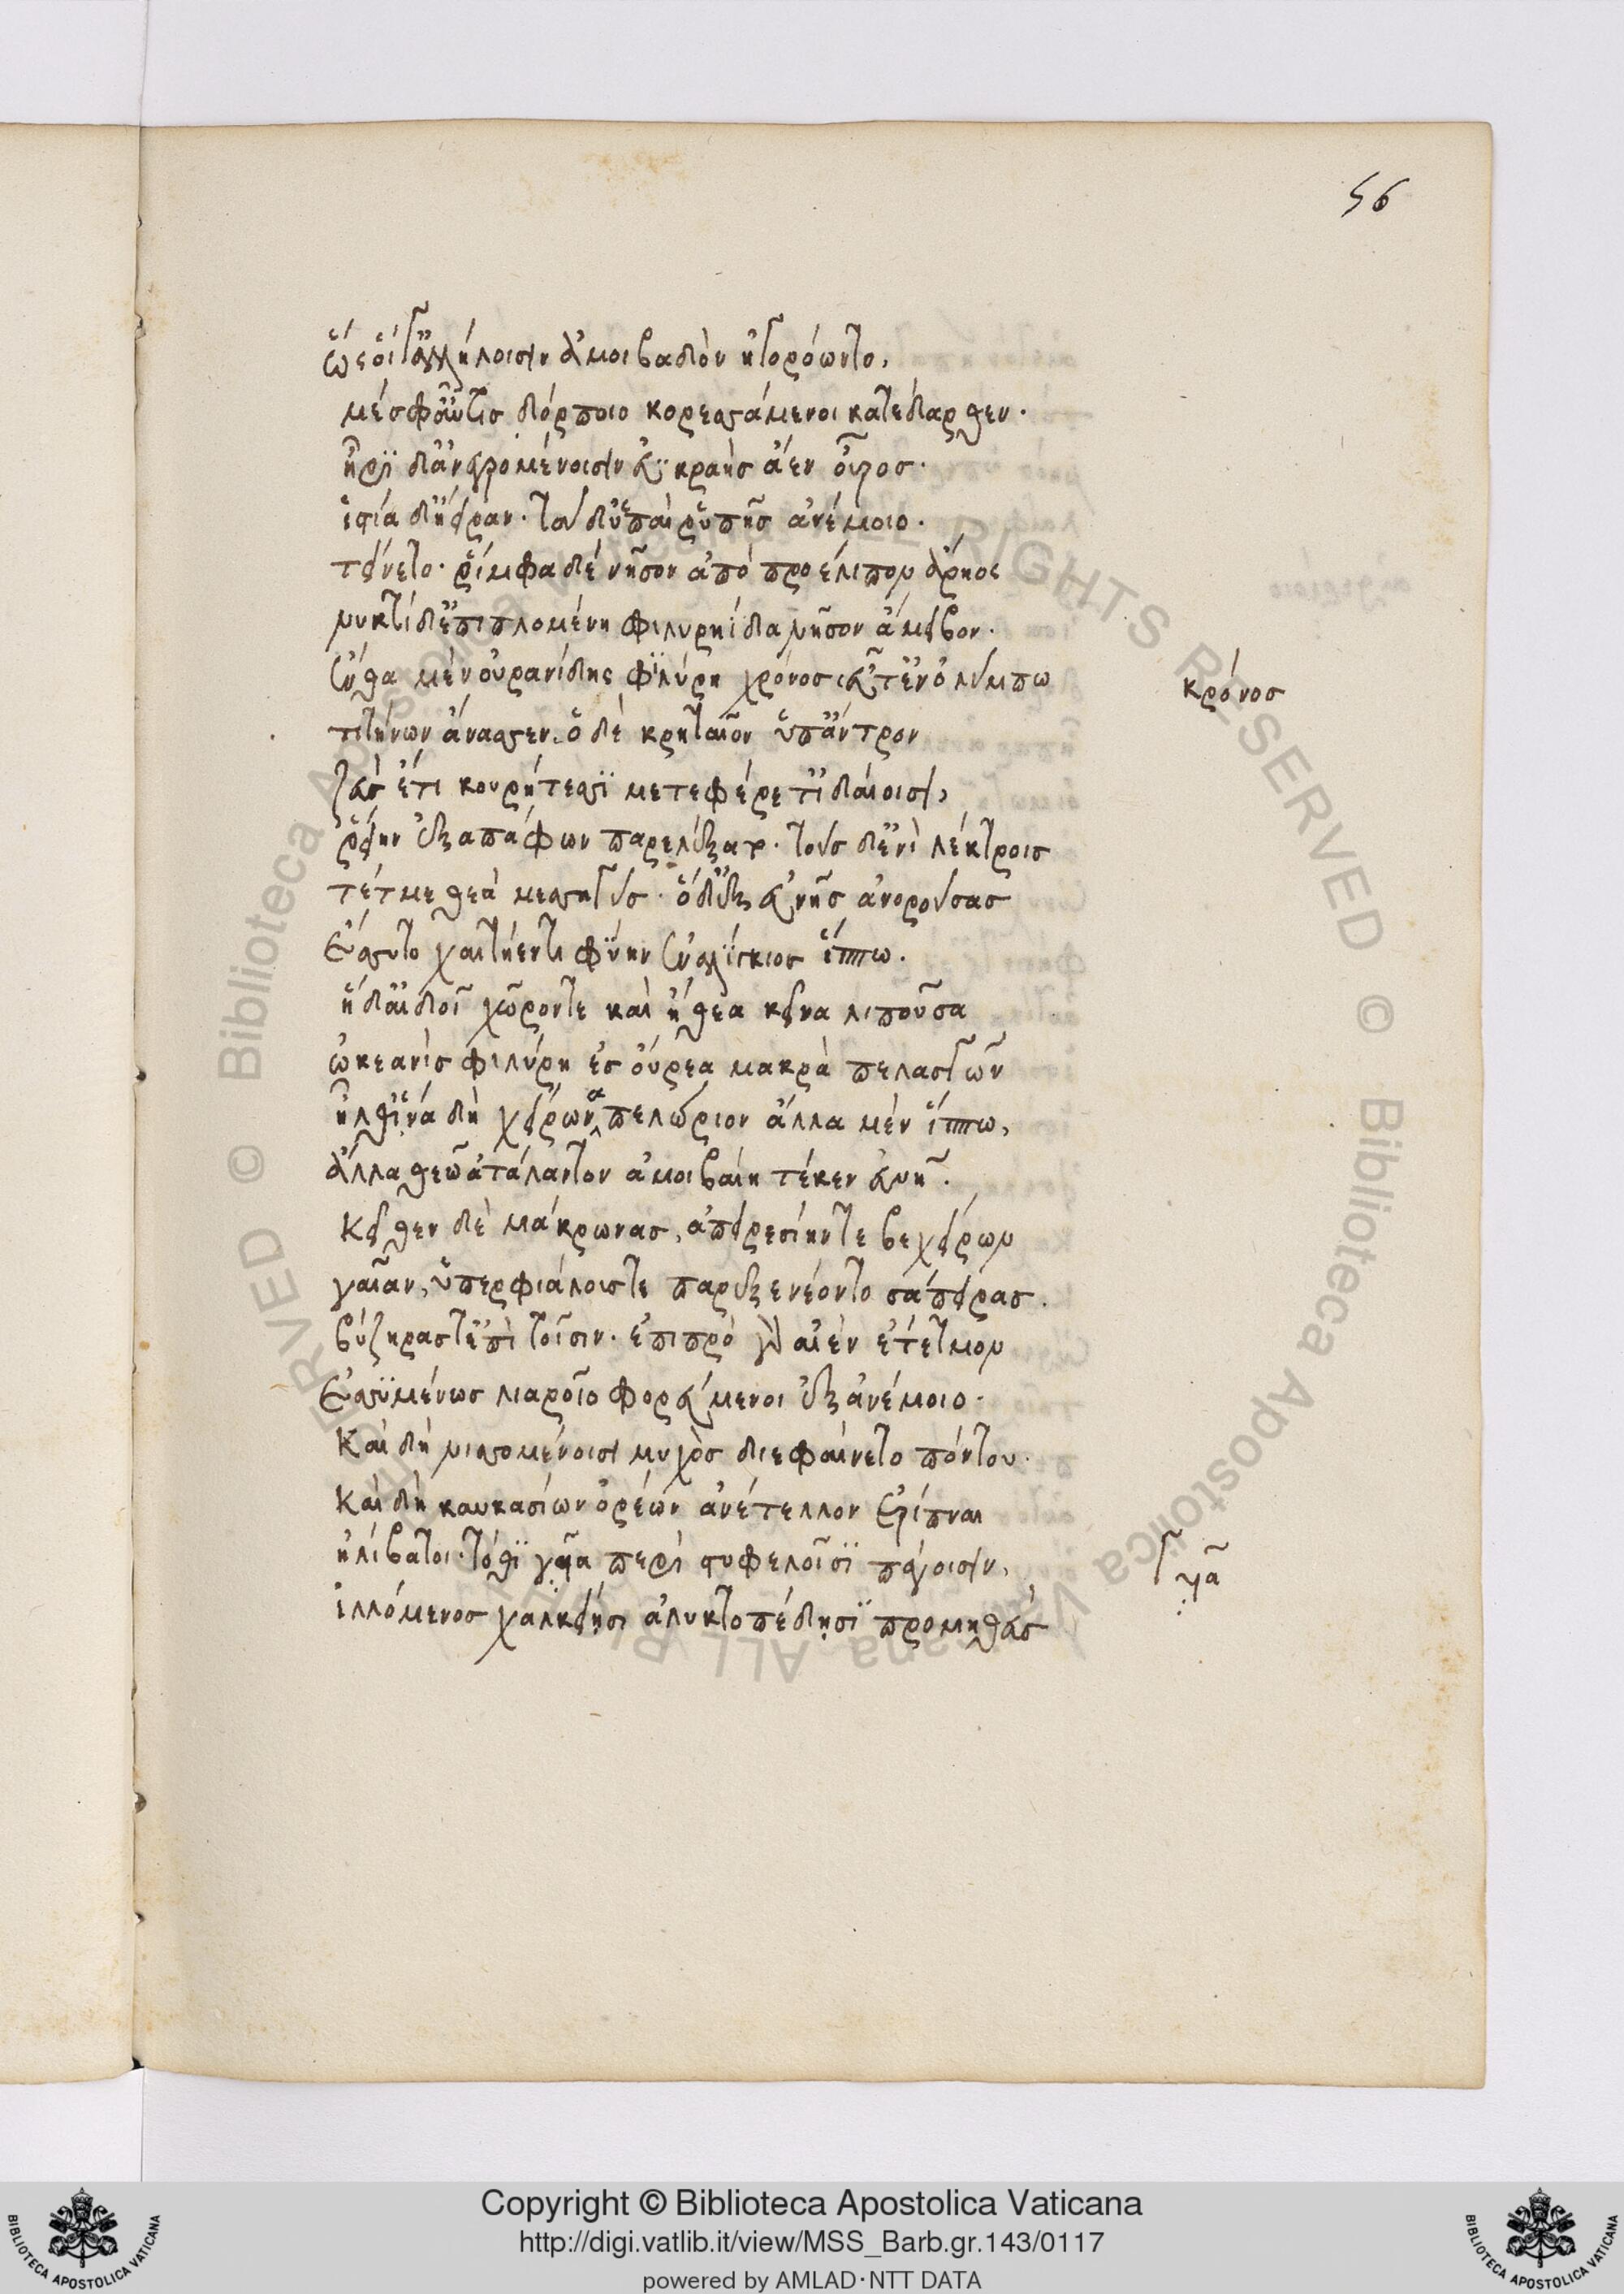 56
ὣς οἵγ' ἀλλήλοισιν ἀμοιβαδὸν ἠγορόωντο,
μέσφ' αὖτις δόρποιο κορεσσάμενοι κατέδαρθεν.
ἦρι δ' ἀνεγρομένοισιν εὐκραὴς ἄεν οὖρος.
ἱστία δ' ἤειραν. τοῦ δ' ὑπαὶ ῥιπῆς ἀνέμοιο.
τείνετο. ῥίμφα δὲ νῆσον ἀπὸ προέλιπον ἄρηος
νυκτὶ δ' ἐπιπλομένη φιλυρηίδα νῆσον ἄμειβον.
ἔνθα μὲν οὐρανίδης φιλύρη χρόνος εὖτ' ἐν ὀλύμπω
τιτήνων ἄνασσεν. ὁ δὲ κρηταῖον ὑπ' ἄντρον
κρόνος
ζεὺς ἔτι κουρήτεσσι μετετρέφετ' ἰδαίοισι,
ῥείην ἐξαπάφων παρελέξατο. τοὺς δ' ἐνὶ λέκτροις
τέτμε θεὰ μεσσηγύς. ὁ δ' ἐξ εὐνῆς ἀνορούσας
ἔσσυτο χαιτήεντι φυὴν ἐναλίγκιος ἵππω.
ἡ δ' αἰδοῖ χῶρόν τε καὶ ἤθεα κεῖνα λιποῦσα
ὠκεανὶς φιλύρη ἐς οὔρεα μακρὰ πελασγῶν
ἦλθ' ἵνα δὴ χείρωνα πελώριον ἄλλα μὲν ἵππω,
ἄλλα θεῶ ἀτάλαντον ἀμοιβαίη τέκεν εὐνῆ.
κεῖθεν δὲ μάκρωνας, ἀπειρεσίην τε βεχείρων
γαῖαν, ὑπερφιάλους τε παρεξενέοντο σάπειρας.
βύζηράς τ' ἐπὶ τοῖσιν. ἐπιπρὸ γὰρ αἰὲν ἔτετμον
ἐσσυμένως λιαροῖο φορεύμενοι ἐξ ἀνέμοιο.
καὶ δὴ νισσομένοισι μυχὸς διεφαίνετο πόντου.
καὶ δὴ καυκασίων ὀρέων ἀνέτελλον ἐρίπναι
ἠλίβατοι. τόθι γυῖα περὶ στυφελοῖσι πάγοισιν,
γυῖα
ἰλλόμενος χαλκείῃσι ἀλυκτοπέδῃσι προμηθεὺς
Copyright © Biblioteca Apostolica Vaticana
http://digi.vatlib.it/view/MSS_Barb.gr.143/0117
powered by AMLAD·NTT DATA
BIBLIOTECA APOSTOLICA VATICANA
BIBLIOTECA APOSTOLICA VATICANA